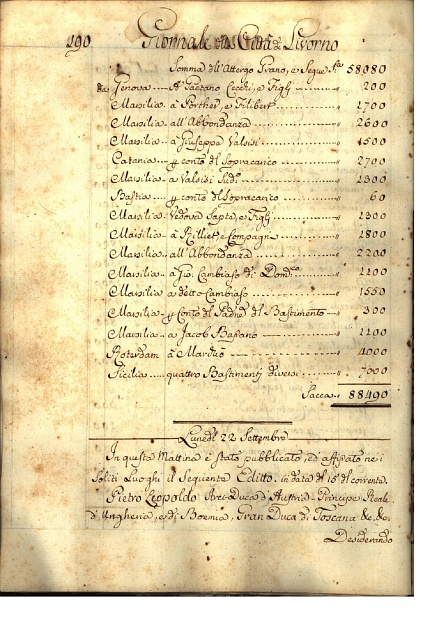 190 Giornale della Città di Livorno
Somma dell'Attergo Grano, e Segue Sa 58080
da Genova .... A Gaetano Cecchi, e Figlj ......... " 200
Marsilia .. à Porcher, e Filibert ......... " 1700
Marsilia .. all'Abbondanza ......... " 2600
Marsilia .. à Giuseppe Valsisi ......... " 1500
Catania .... p conto del Sopracarico ......... " 2700
Marsilia .. a Valsisi Sudo ......... " 1300
Bastia .... p conto del Sopracarico ......... " 60
Marsilia .. Vedova Sapte, e Figlj ......... " 1300
Marsilia .. à Rilliet, e Compagni ......... " 1800
Marsilia .. all'Abbondanza ......... " 2200
Marsilia .. à Gio: Cambiaso di Domco ......... " 1100
Marsilia .. a detto Cambiaso ......... " 1550
Marsilia .. p Conto del Padne del Bastimento — " 300
Marsilia .. a Jacob Bassano ......... " 1200
Roterdam à ......... " 4000
Sicilia ..... quattro Bastimentj diversi ...... " 7000
Sacca 88490
Lunedì 22 Settembre
In questa Mattina è stato pubblicato, ed affissato nei
Soliti Luoghi il Seguente Editto. in data del 15 del corrente.
Pietro Leopoldo Arci-Duca d'Austria = Principe Reale
d'Ungheria, e di Boemia, Gran Duca di Toscana &c. &c.
Desiderando